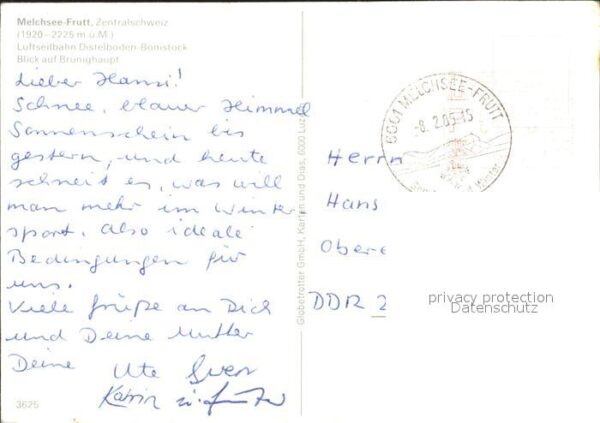 Melchsee-Frutt, Zentralschweiz
(1920-2225 m ü.M.)
Luftseilbahn Distelboden-Bonistock
Blick auf Brünighaupt
Lieber Hansi!
Schnee, blauer Himmel
Sonnenschein bis
gestern, und heute
schneit es, was will
man mehr im Winter
sport. Also ideale
Bedingungen für
uns.
Viele Grüße an Dich
und Deine Mutter
Deine Ute Sven
Katrin
3625
Globetrotter GmbH, Karten und Dias, 6000 Luz
6061 MELCHSEE-FRUTT
-8.2.85-15
Herrn
Hans
Obere
DDR 2
privacy protection
Datenschutz